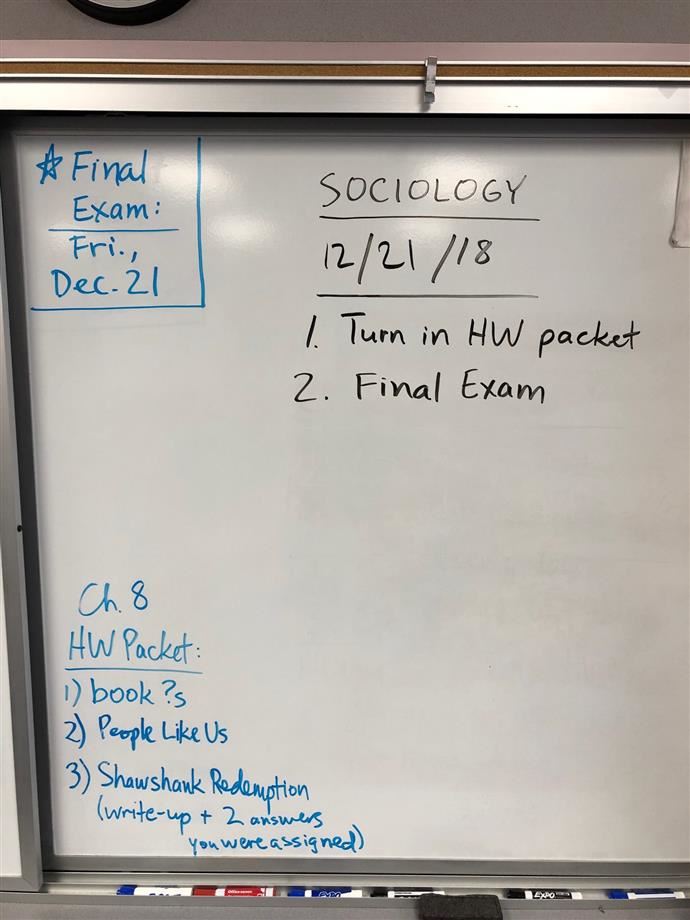 ☆ Final
Exam:
Fri.,
Dec. 21
SOCIOLOGY
12/21/18
1. Turn in HW packet
2. Final Exam
Ch. 8
HW Packet:
1) book ?s
2) People Like Us
3) Shawshank Redemption
(write-up + 2 answers
you were assigned)
EXPO
EXPO